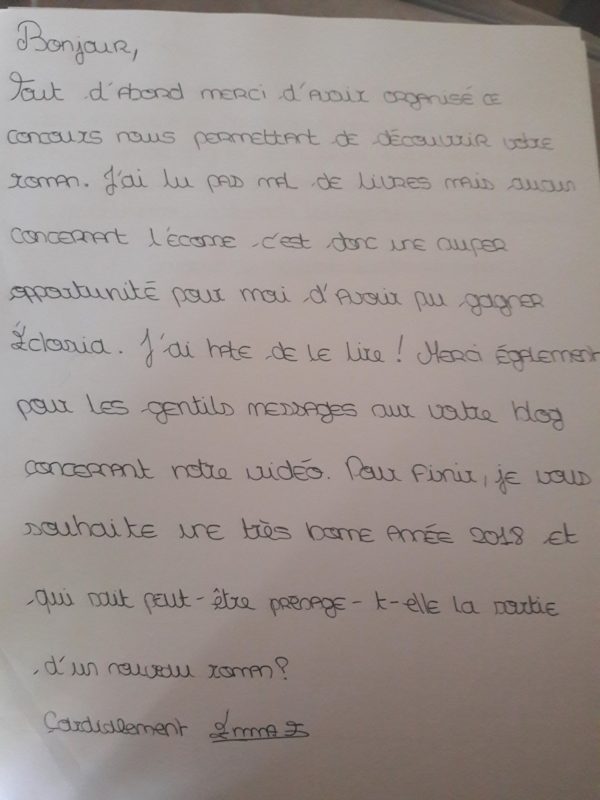 Bonjour,
Tout d'abord merci d'avoir organisé ce
concours nous permettant de découvrir votre
roman. J'ai lu pas mal de livres mais aucun
concernant l'écome c'est donc une super
opportunité pour moi d'avoir pu gagner
Éclosia. J'ai hate de le lire ! Merci également
pour les gentils messages sur votre blog
concernant notre vidéo. Pour finir, je vous
souhaite une très bonne année 2018 et
qui sait peut-être présage-t-elle la sortie
d'un nouveau roman ?
Cordialement Emma J